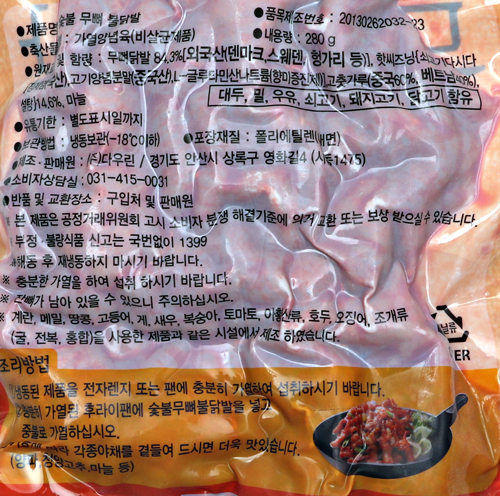 ●제품명 : 숯불 무뼈 불닭발
●품목제조번호 : 20130262032-23
●축산물 : 가열양념육(비살균제품)
●내용량 : 280 g
●원재료 및 함량 : 무뼈닭발 84.3%{외국산(덴마크,스웨덴, 헝가리 등)}, 핫씨즈닝{쇠고기다시다
고기양념분말(중국산), L-글루타민산나트륨(향미증진제)},고춧가루(중국60%, 베트남40%),
설탕}14.6%, 마늘
대두, 밀, 우유, 쇠고기, 돼지고기, 닭고기 함유
●유통기한 : 별도표시일까지
●보관방법 : 냉동보관(-18℃이하)
●포장재질 : 폴리에틸렌(내면)
●제조·판매원 : (주)다우린 / 경기도 안산시 상록구 영화길4 (사동1475)
●소비자상담실 : 031-415-0031
●반품 및 교환장소 : 구입처 및 판매원
본 제품은 공정거래위원회 고시 소비자 분쟁 해결기준에 의거 교환 또는 보상 받으실 수 있습니다.
부정·불량식품 신고는 국번없이 1399
해동 후 재냉동하지 마시기 바랍니다.
※ 충분한 가열을 하여 섭취 하시기 바랍니다.
※ 잔뼈가 남아 있을 수 있으니 주의하십시오.
※ 계란, 메밀, 땅콩, 고등어, 게, 새우, 복숭아, 토마토, 아황산류, 호두, 오징어, 조개류
(굴, 전복, 홍합)을 사용한 제품과 같은 시설에서 제조 하였습니다.
비닐류
조리방법
냉동된 제품을 전자렌지 또는 팬에 충분히 가열하여 섭취하시기 바랍니다.
가열된 후라이팬에 숯불무뼈불닭발을 넣고
중불로 가열하십시오.
각종야채를 곁들여 드시면 더욱 맛있습니다.
(양파 청양고추,마늘 등)